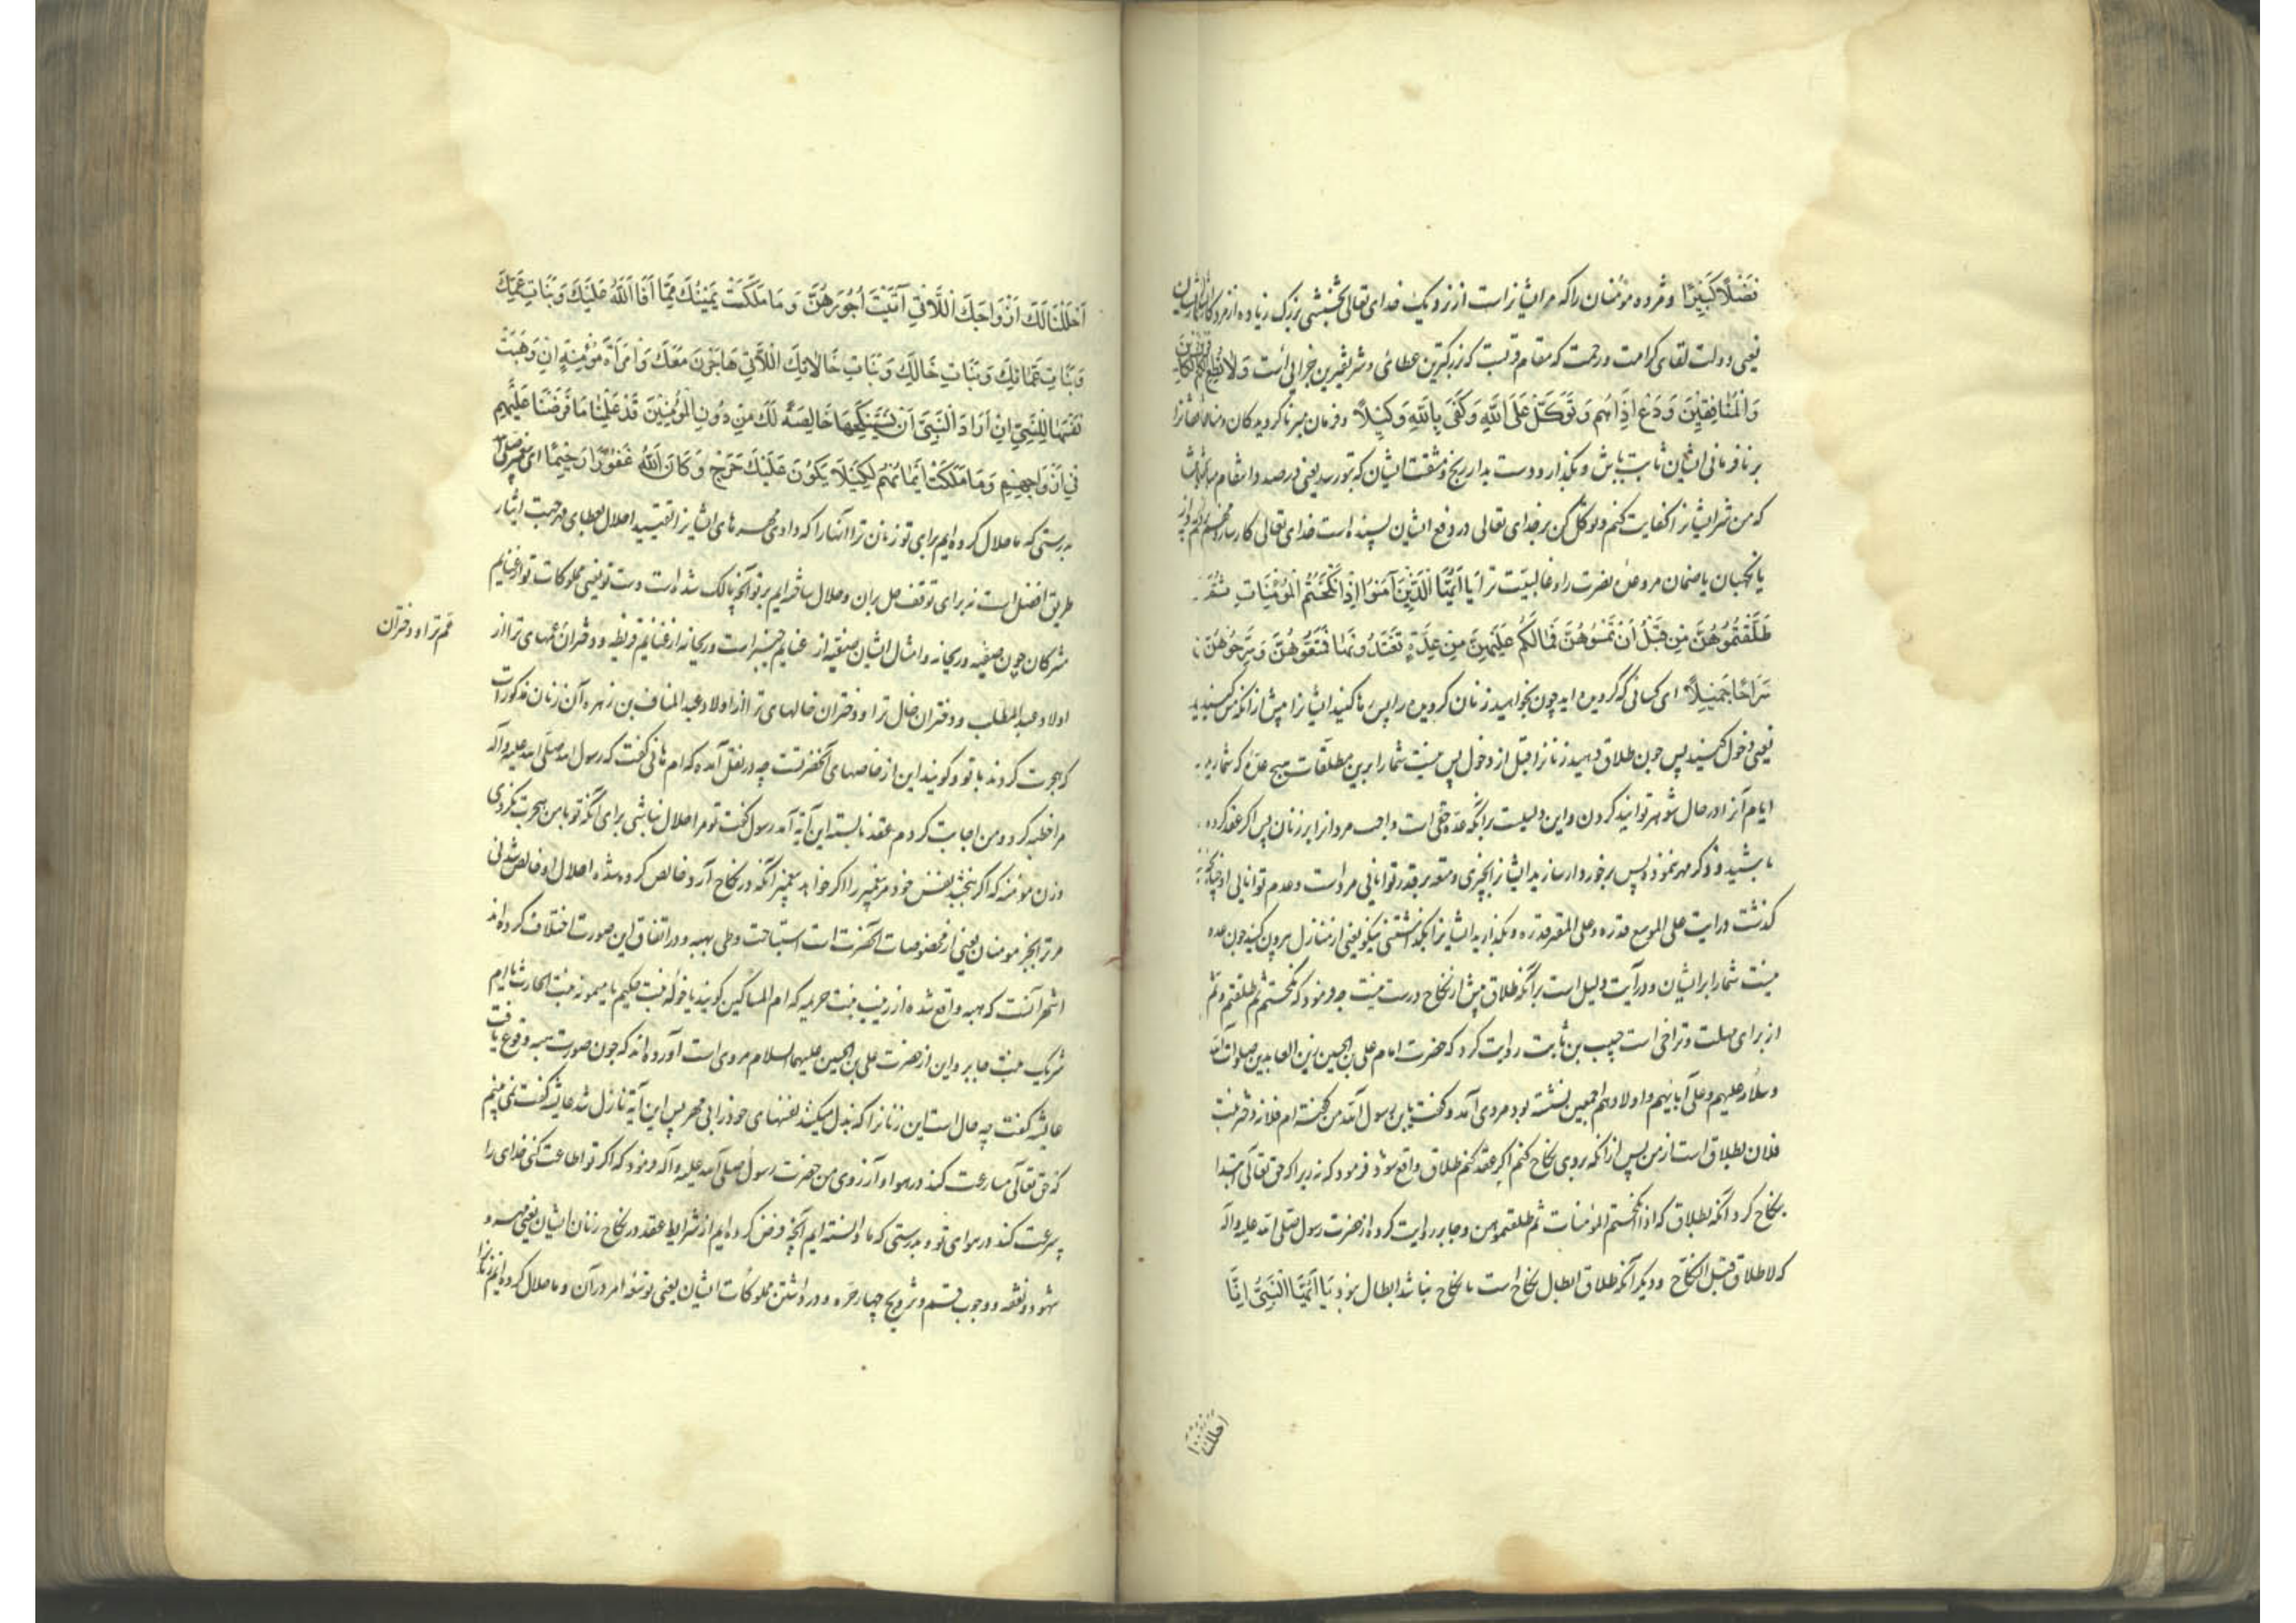 فَضْلًا كَبِيرًا و مژده ده مؤمنان را که مر ایشانراست از نزدیک خدای تعالی بخششی بزرک زیاده از مزد کار
یعنی دولت لقای کرامت و رحمت که مقام قربست که بزرکترین عطائی و شریفترین جزائی است وَلَا تُطِعِ الْكَافِرِينَ
وَالْمُنَافِقِينَ وَدَعْ أَذَاهُمْ وَتَوَكَّلْ عَلَى اللَّهِ وَكَفَى بِاللَّهِ وَكِيلًا و فرمان مبر ناکرویدکان و منافقانرا
بر نافرمانی ایشان ثابت باش و بکذار و دست بدار رنج و مشقت ایشان که بتو رسد یعنی در صدد انتقام مباش
که من شر ایشانرا کفایت کنم و توکل کن بر خدای تعالی در دفع ایشان بسنده است خدای تعالی کارساز
یا نکهبان یا ضمان مر وعدۀ نصرت را و غالبیت ترا يَا أَيُّهَا الَّذِينَ آمَنُوا إِذَا نَكَحْتُمُ الْمُؤْمِنَاتِ ثُمَّ
طَلَّقْتُمُوهُنَّ مِنْ قَبْلِ أَنْ تَمَسُّوهُنَّ فَمَا لَكُمْ عَلَيْهِنَّ مِنْ عِدَّةٍ تَعْتَدُّونَهَا فَمَتِّعُوهُنَّ وَسَرِّحُوهُنَّ
سَرَاحًا جَمِيلًا ای کسانی که کرویده اید چون بخواهید زنان کرویده را پس رها کنید ایشانرا پیش از آنکه مس کنید
یعنی دخول کنید پس چون طلاق دهید زنانرا قبل از دخول پس نیست شما را برین مطلقات هیچ عدۀ که شمارید
ایام آنرا در حال شوهر توانید کردن و این دلیلست برانکه عده حقی است واجب مردانرا بر زنان پس اکر عقد کرده
باشید و ذکر مهر ننموده پس برخوردار سازید ایشانرا بچیزی و متعه بر قدر توانایی مرد است و عدم توانایی او چنانچه
کذشت در آیت علی الموسع قدره و علی المقتر قدره و بکذارید ایشانرا بکذاشتنی نیکو یعنی از منازل بیرون کنید چون عده
نیست شما را بر ایشان و در آیت دلیل است برآنکه طلاق پیش از نکاح درست نیست چه فرمود که نکحتم ثم طلقتم و ثم
از برای مهلت و تراخی است حبیب بن ثابت روایت کرد که حضرت امام علی بن الحسین زین العابدین صلوات الله
وسلامه علیهم وعلی آبائهم و اولادهم اجمعین نشسته بود مردی آمد و کفت یا بن رسول الله من کفته ام فلانه دختر
فلان بطلاق است از من پس از آنکه بروی نکاح کنم اکر عقد کنم طلاق واقع شود فرمود که نه زیرا که حق تعالی ابتدا
بنکاح کرد آنکه بطلاق که اذا نکحتم المؤمنات ثم طلقتموهن و جابر روایت کرده از حضرت رسول صلی الله علیه وآله
که لا طلاق قبل النکاح و دیکر آنکه طلاق ابطال نکاح است تا نکاح نباشد ابطال نبود يَا أَيُّهَا النَّبِيُّ إِنَّا
احللنا
أَحْلَلْنَا لَكَ أَزْوَاجَكَ اللَّاتِي آتَيْتَ أُجُورَهُنَّ وَمَا مَلَكَتْ يَمِينُكَ مِمَّا أَفَاءَ اللَّهُ عَلَيْكَ وَبَنَاتِ عَمِّكَ
وَبَنَاتِ عَمَّاتِكَ وَبَنَاتِ خَالِكَ وَبَنَاتِ خَالَاتِكَ اللَّاتِي هَاجَرْنَ مَعَكَ وَامْرَأَةً مُؤْمِنَةً إِنْ وَهَبَتْ
نَفْسَهَا لِلنَّبِيِّ إِنْ أَرَادَ النَّبِيُّ أَنْ يَسْتَنْكِحَهَا خَالِصَةً لَكَ مِنْ دُونِ الْمُؤْمِنِينَ قَدْ عَلِمْنَا مَا فَرَضْنَا عَلَيْهِمْ
فِي أَزْوَاجِهِمْ وَمَا مَلَكَتْ أَيْمَانُهُمْ لِكَيْلَا يَكُونَ عَلَيْكَ حَرَجٌ وَكَانَ اللَّهُ غَفُورًا رَحِيمًا ای
بدرستی که ما حلال کرده ایم برای تو زنان ترا آنها را که دادی مهرهای ایشانرا تقیید احلال بعطای مهر جهت ایثار
طریق افضل است نه برای توقف حل بران و حلال ساخته ایم بر تو آنچه مالک شده است دست تو یعنی مملوکات تو از غنایم
مشرکان چون صفیه و ریحانه و امثال ایشان صفیه از غنایم خیبر است و ریحانه از غنایم قریظه و دختران عمهای ترا از
عم ترا و دختران
اولاد عبد المطلب و دختران خال ترا و دختران خالهای ترا از اولاد عبد المناف بن زهره آن زنان مذکورات
که هجرت کردند با تو و کویند این از خاصهای آنحضرتست چه در نقل آمده که ام هانی کفت که رسول الله صلی الله علیه وآله
مرا خطبه کرد و من اجابت کردم عقد نابسته این آیه آمد رسول کفت تو مرا حلال نباشی برای آنکه تو با من هجرت نکردی
و زن مؤمنه که اکر ببخشد نفس خود مر پیغمبر را اکر خواهد پیغمبر آنکه در نکاح آرد خالص کرده شده احلال او خالص شدنی
مر ترا بجز مومنان یعنی از مخصوصات آنحضرت است استباحت وطی بهبه و در اتفاق این صورت اختلاف کرده اند
اشهر آنست که هبه واقع شده از زینب بنت خزیمه که ام المساکین کویند یا خوله بنت حکیم یا میمونه بنت الحارث یا ام
شریک بنت جابر و این از حضرت علی بن الحسین علیهما السلام مروی است آورده اند که چون صورت هبه وقوع یافت
عایشه کفت چه حال است این زنانرا که بذل میکنند نفسهای خود را بی مهر پس این آیة نازل شد عایشه کفت نمی بینم
که حق تعالی مسارعت کند در هوا و آرزوی من حضرت رسول صلی الله علیه وآله فرمود که اکر تو اطاعت کنی خدای را
سرعت کند در هوای تو و بدرستی که ما دانسته ایم آنچه فرض کرده ایم از شرایط عقد در نکاح زنان ایشان یعنی مهر و
شهود و نفقه و وجوب قسم و تزویج چهار حره و در داشتن مملوکات ایشان یعنی توسعه امر در آن و ما حلال کرده ایم زنانرا